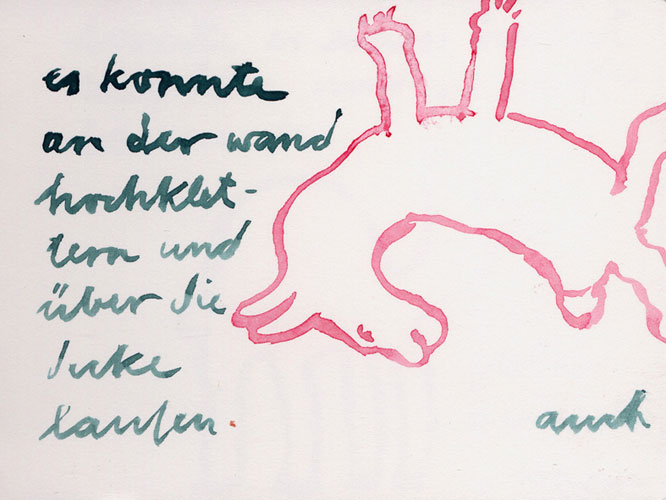 es konnte
an der wand
hochklet-
tern und
über die
decke
laufen.
auch